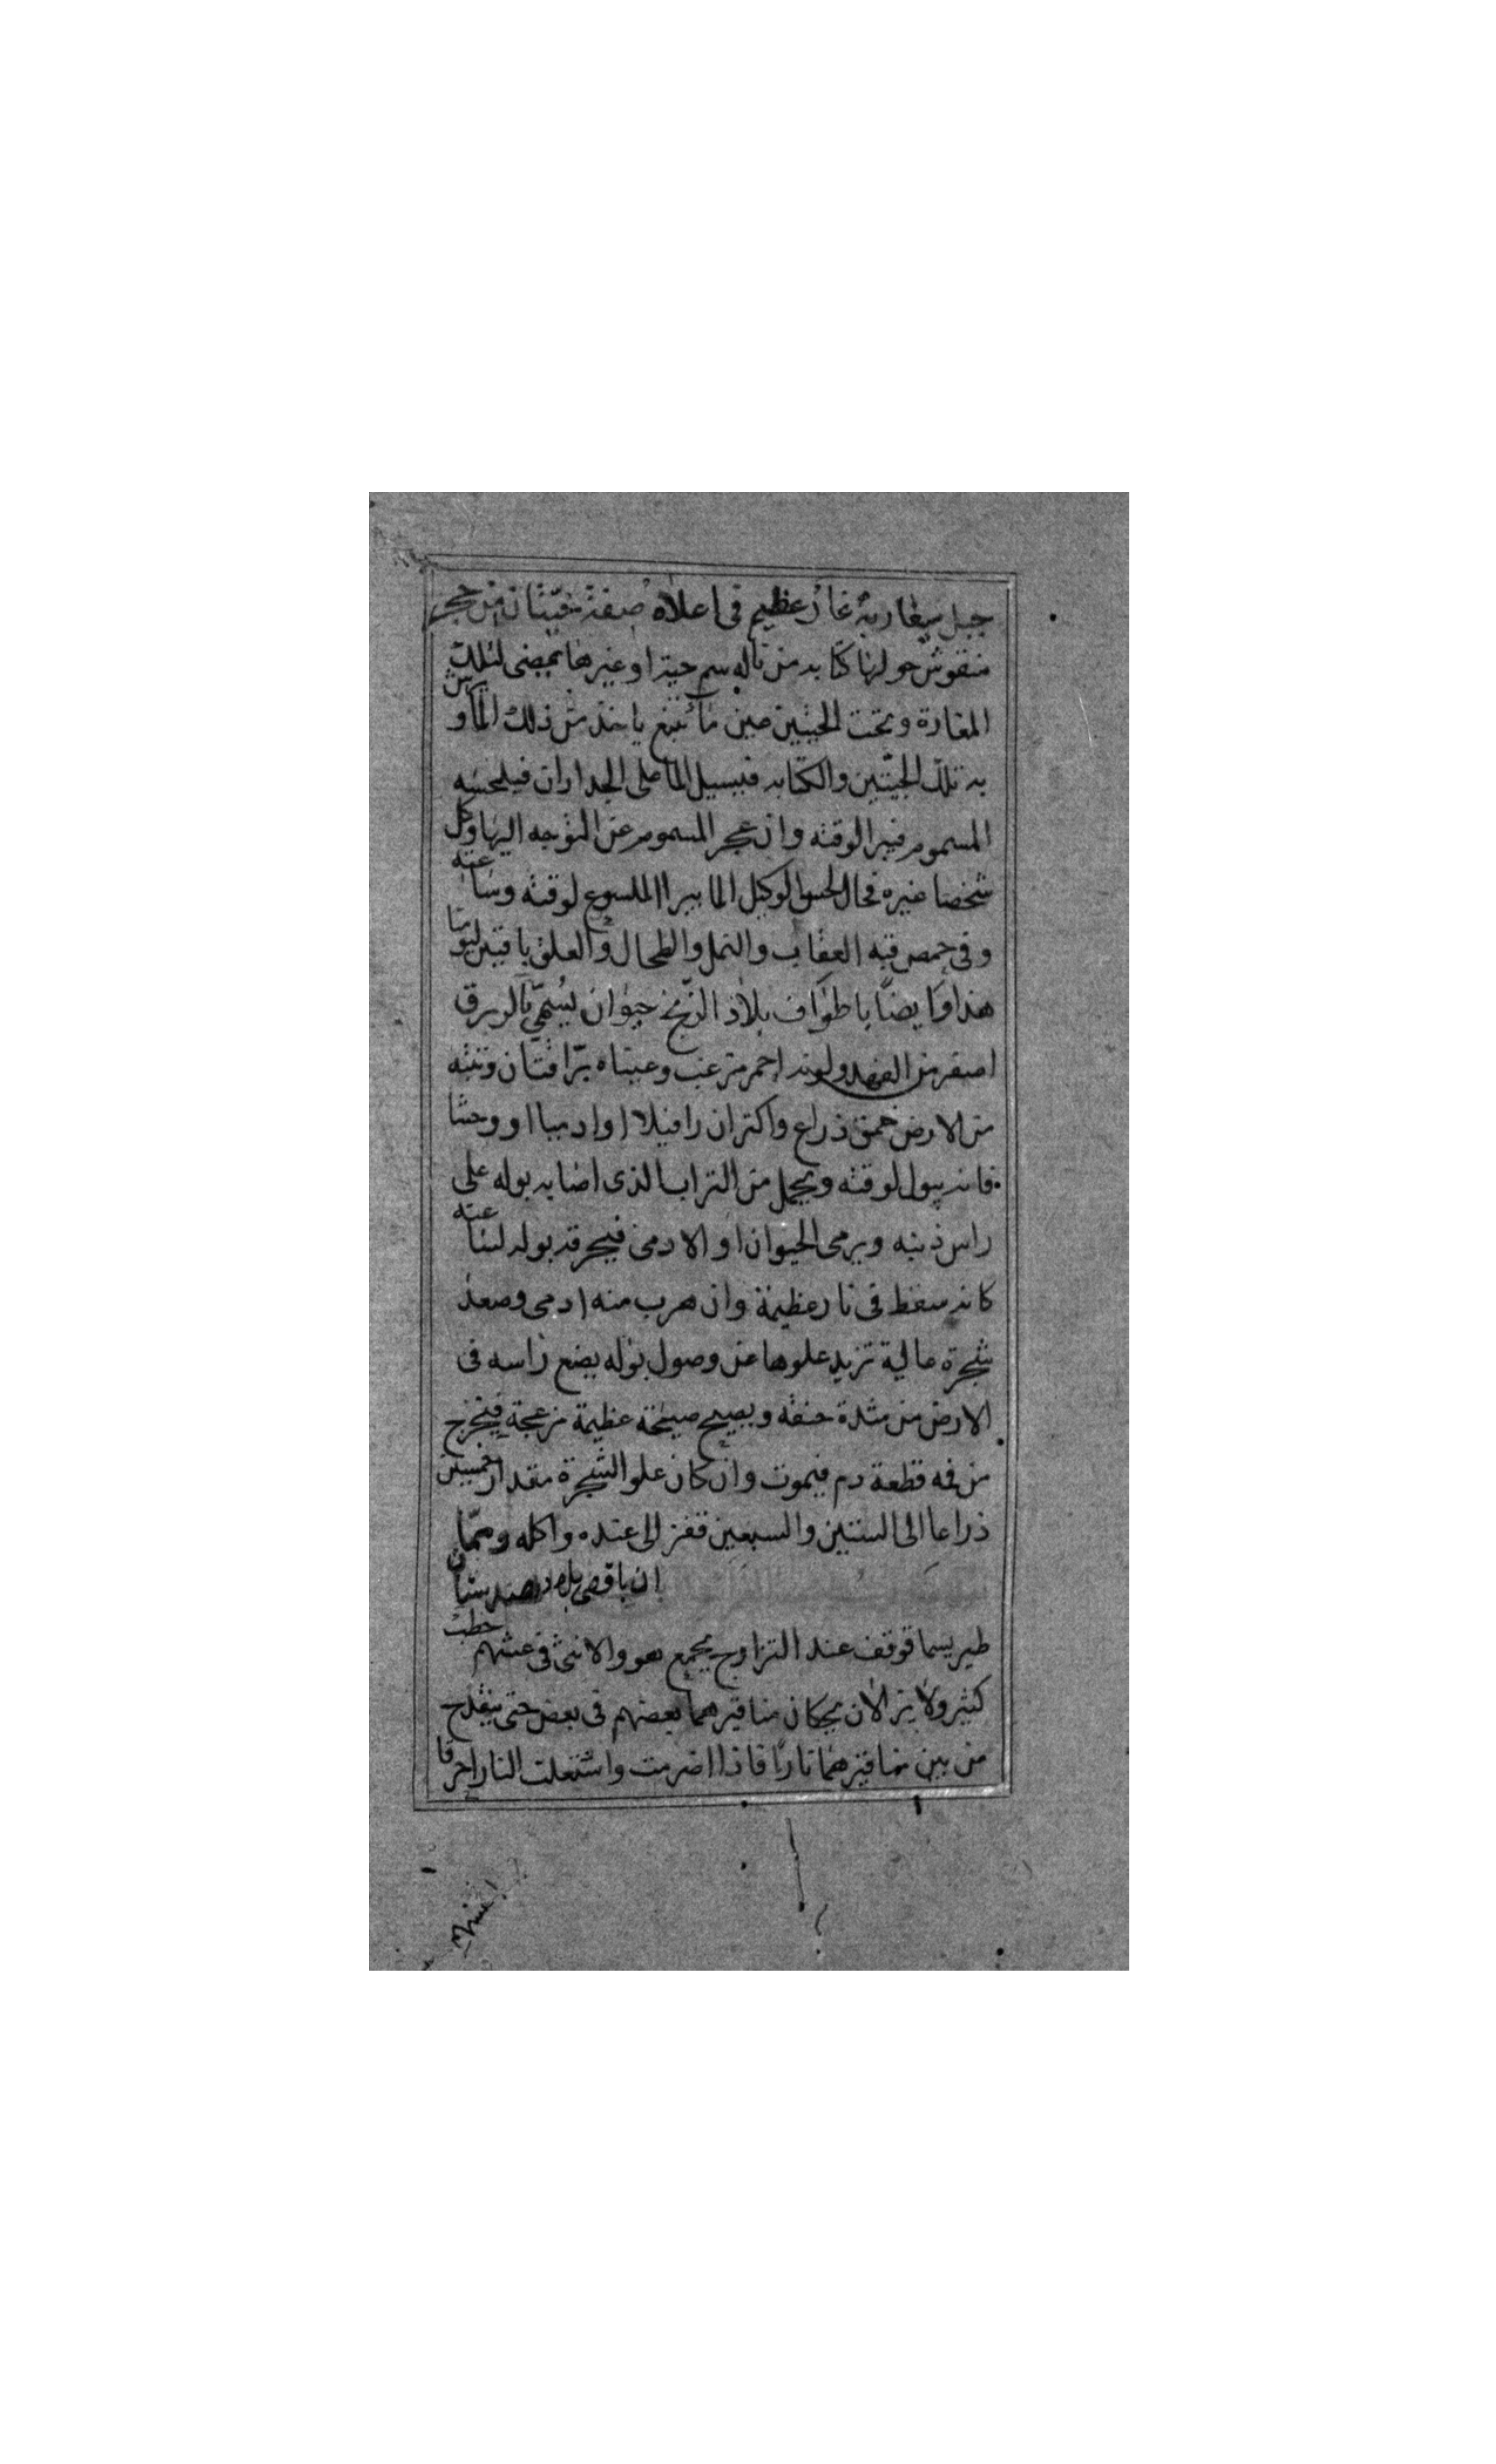 جبل سنجار به غار عظيم في اعلاه صفة حيتان من حجر
منقوش حولها كتابه من ناله سم حية او غيرها يمضى لتلك
المغارة وتحت الحيتين عين ماء تنبع ياخذ من ذلك الماء ويرش
به تلك الحيتين والكتابه فيسيل الماء على الجداران فيلحسه
المسموم فيبرا لوقته وان عجز المسموم عن التوجه اليها وكل
شخصا غيره فحال لحس الوكيل الما يبرا الملسوع لوقته وساعته
وفي حمص قبه العقاب والنمل والطحال والعلق باقية ليومنا
هذا وايضا باطواف بلاد الزنج حيوان يسمى بالزبرق
اصغر من الفهد ولونه احمر مزغب وعيناه براقتان وثبته
من الارض خمسة ذراع واكثر ان را فيلا او ادميا او وحشا
فانه يبول لوقته ويحمل من التراب الذى اصابه بوله على
راس ذنبه ويرمى الحيوان او الادمى فيحرقه بوله لساعته
كانه سقط في نار عظيمة وان هرب منه ادمى وصعد
شجرة عالية تزيد علوها عن وصول بوله يضع راسه في
الارض من شدة حنقه ويصيح صيحة عظيمة مزعجة فيخرج
من فمه قطعة دم فيموت وان كان علو الشجرة مقدار خمسين
ذراعا الى الستين والسبعين قفز الى عنده واكله ومما
ان باقصى بلاد
طير يسما قوقف عند التزاوج يجمع هو والانثى في عشهم حطب
كثير ولا يزالان يحكان مناقيرهما بعضهم في بعض حتى ينقدح
من بين مناقيرهما نارا فاذا اضرمت واشتعلت النار احرقا